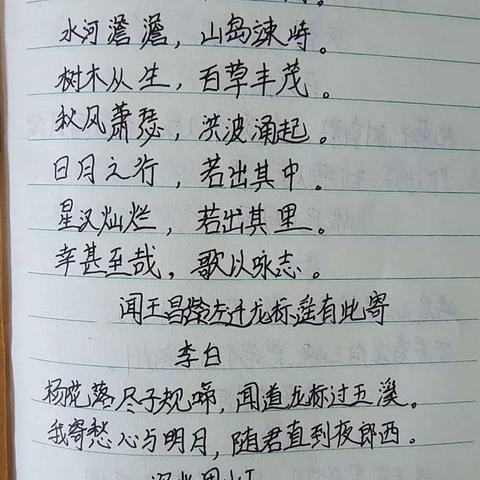 水河澹澹，山岛竦峙。
树木从生，百草丰茂。
秋风萧瑟，洪波涌起。
日月之行，若出其中。
星汉灿烂，若出其里。
幸甚至哉，歌以咏志。
闻王昌龄左迁龙标遥有此寄
李白
杨花落尽子规啼，闻道龙标过五溪。
我寄愁心与明月，随君直到夜郎西。